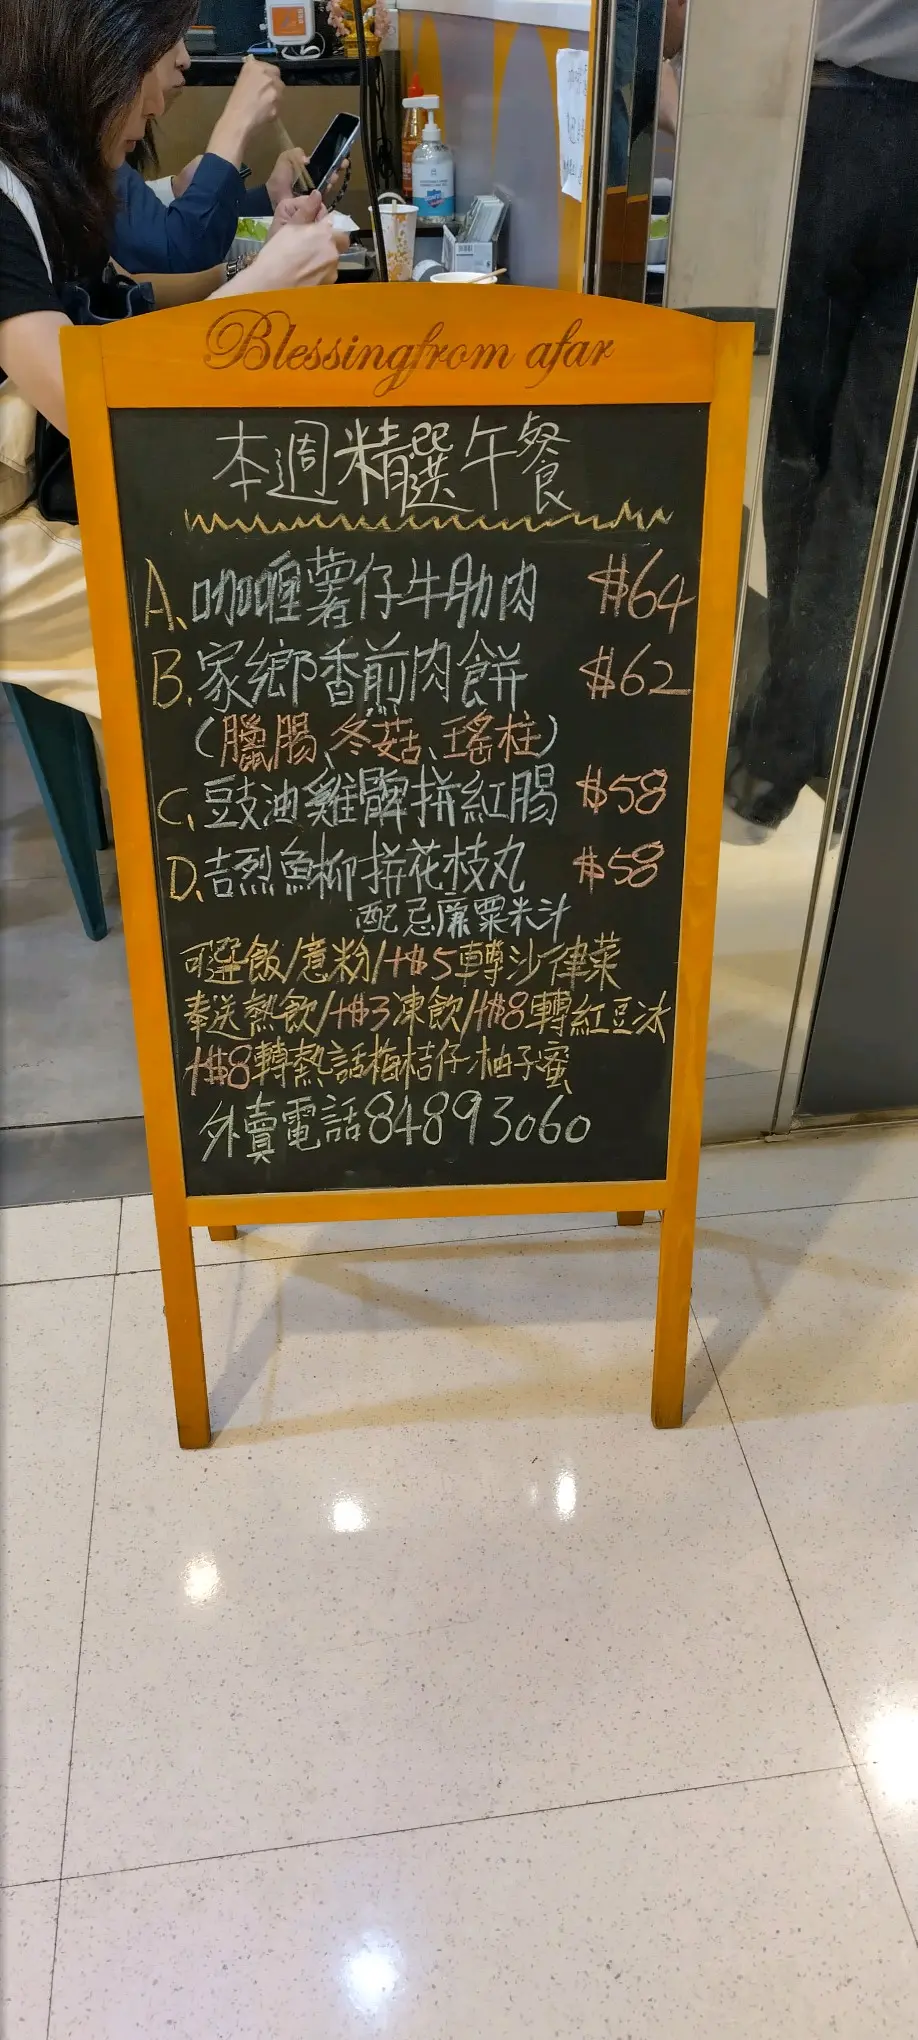 Blessingfrom afar
本週精選午餐
A、咖喱薯仔牛肋肉 $64
B、家鄉香煎肉餅 $62
(臘腸、冬菇、瑤柱)
C、豉油雞髀拼紅腸 $58
D、吉烈魚柳拼花枝丸 $58
配忌廉粟米汁
可選飯/意粉/+$5轉沙律菜
奉送熱飲/+$3凍飲/+$8轉紅豆冰
+$8轉熱話梅桔仔柚子蜜
外賣電話84893060